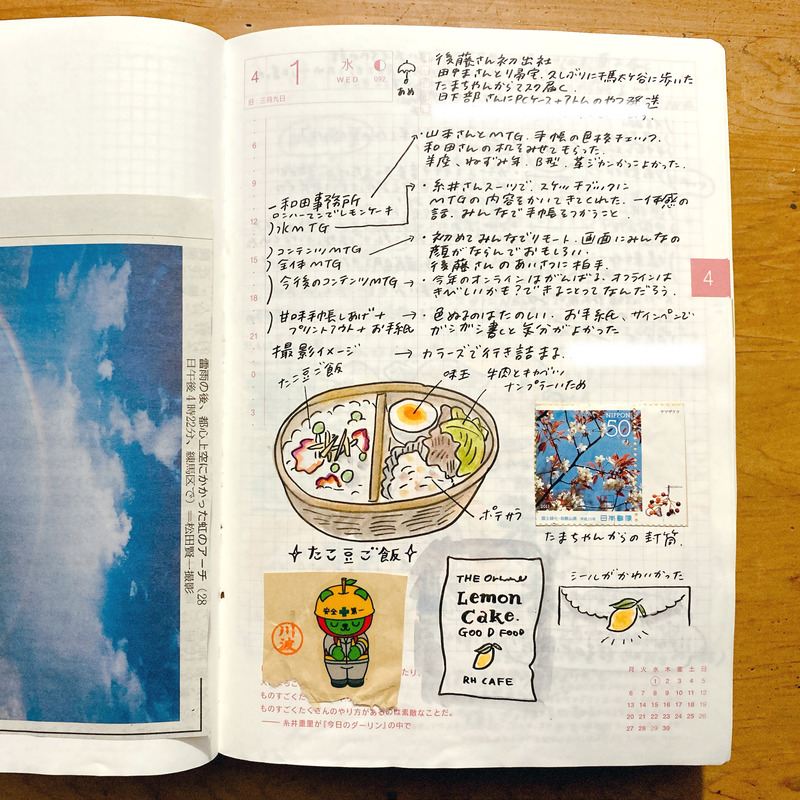 4 1 水 WED 092 あめ
旧 三月九日
後藤さん初出社
たまちゃんからマスク届く
日下部さんにPCケース+アトムのやつ発送
・山本さんとMTG. 手帳の色校チェック.
和田さんの机をみせてもらった.
羊座、ねずみ年、B型. 革ジャンかっこよかった.
一和田事務所
ロンハーマンでレモンケーキ
)ほMTG
・糸井さんスーツで、スケッチブックに
MTGの内容をかいてきてくれた. 一体感の
話. みんなで手帳をつかうこと.
)コンテンツMTG
)全体MTG
・初めてみんなでリモート. 画面にみんなの
顔がならんでおもしろい.
後藤さんのあいさつに拍手.
)今後のコンテンツMTG
・今年のオンラインはがんばる. オフラインは
きびしいかも?できることってなんだろう.
)甘味手帳しあげ+
プリントアウト+お手紙
・色ぬるのはたのしい. お手紙、サインペンで
ガシガシ書くと気分がよかった
撮影イメージ → カラーズで行き詰まる.
6
9
12
15
18
21
0
3
4
たこ豆ご飯
味玉
牛肉とキャベツ
ナンプラーいため
ポテサラ
たこ豆ご飯
NIPPON
50
ヤマザクラ
日本郵便
たまちゃんからの封筒.
シールがかわいかった
安全 第一
川波
THE
Lemon
Cake.
GOOD FOOD
RH CAFE
ものすごくた
ものすごくたくさんのやり方があるのは素敵なことだ。
── 糸井重里が『今日のダーリン』の中で
月 火 水 木 金 土 日
1 2 3 4 5
6 7 8 9 10 11 12
13 14 15 16 17 18 19
20 21 22 23 24 25 26
27 28 29 30
雷雨の後、都心上空にかかった虹のアーチ(28
日午後4時22分、練馬区で)=松田賢一撮影